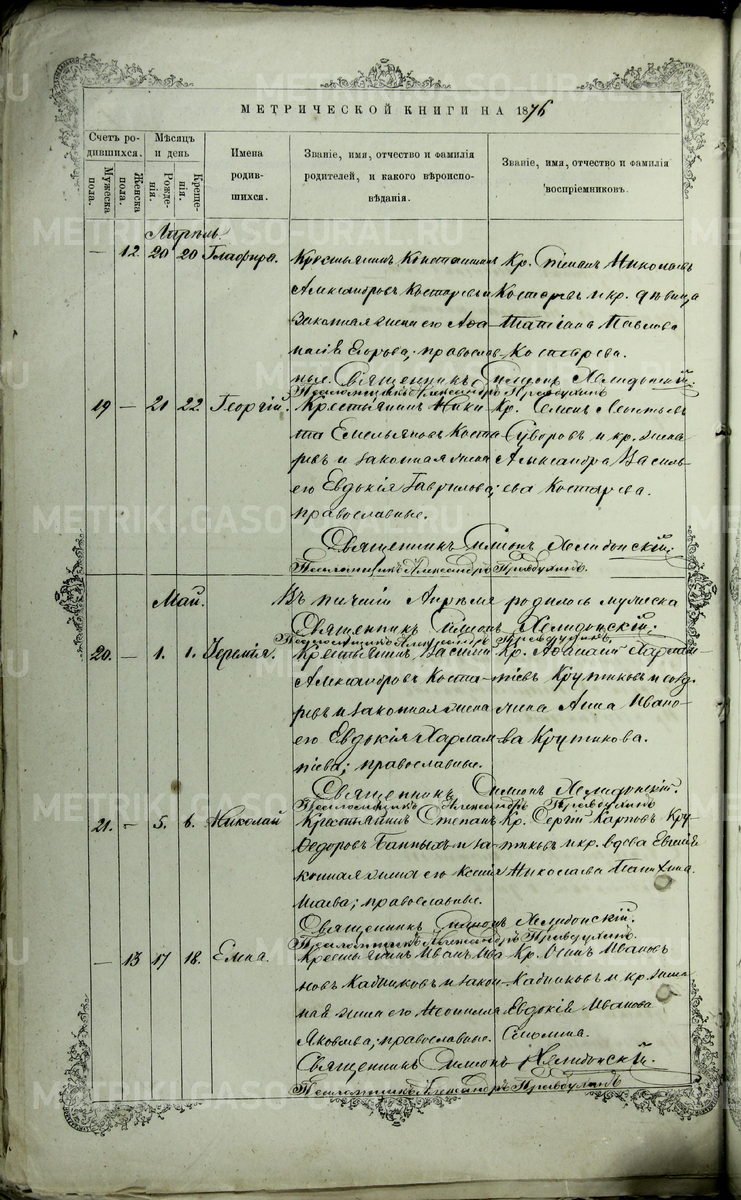 МЕТРИЧЕСКОЙ КНИГИ НА 1876
Счетъ родившихся.
Мужеска пола.
Женска пола.
Мѣсяцъ и день
Рожденія.
Крещенія.
Имена родившихся.
Званіе, имя, отчество и фамилія родителей, и какого вѣроисповѣданія.
Званіе, имя, отчество и фамилія воспріемниковъ.
Апрѣль.
— 12. 20 20 Глафира.
Крестьянинъ Константинъ
Александровъ Костаревъ и
законная жена его Афа
насія Егорова; православ-
ные.
Кр. Степанъ Николаевъ
Костаревъ и кр. дѣвица
Татіана Павлова
Костарева.
Священникъ Симеонъ Хелидонскій.
Псаломщикъ Александръ Правдухинъ
19 — 21 22 Георгій.
Крестьянинъ Ники
та Емельяновъ Коста
ревъ и законная жена
его Евдокія Гаврилова;
православные.
Кр. Семенъ Леонтьевъ
Суворовъ и кр. жена
Александра Василь
ева Костарева.
Священникъ Симеонъ Хелидонскій;
Псаломщикъ Александръ Правдухинъ.
Май.
Въ теченіи Апрѣля родилось мужеска
Священникъ Симеонъ Хелидонскій;
Псаломщикъ Александръ Правдухинъ.
20. 1. 1. Іеремія.
Крестьянинъ Василій
Александровъ Коста-
ревъ и законная жена
его Евдокія Харлам
піева; православные.
Кр. Афанасій Харлам
піевъ Крутиковъ и солд.
жена Анна Ивано-
ва Крутикова.
Священникъ Симеонъ Хелидонскій.
Псаломщикъ Александръ Правдухинъ
21. — 5. 6. Николай
Крестьянинъ Степанъ
Федоровъ Банныхъ и за
конная жена его Ксенія
Исаева; православные.
Кр. Сергій Карповъ Кру
тиковъ и кр. вдова Евгенія
Николаева
Священникъ Симеонъ Хелидонскій.
Псаломщикъ Александръ Правдухинъ.
— 13 17 18. Елена.
Крестьянинъ Иванъ Ива
новъ Кадниковъ и закон
ная жена его Неонилла
Яковлева; православные.
Кр. Осипъ Ивановъ
Кадниковъ и кр. жена
Евдокія Иванова
Священникъ Симеонъ Хелидонскій.
Псаломщикъ Александръ Правдухинъ
METRIKI.GASO-URAL.RU